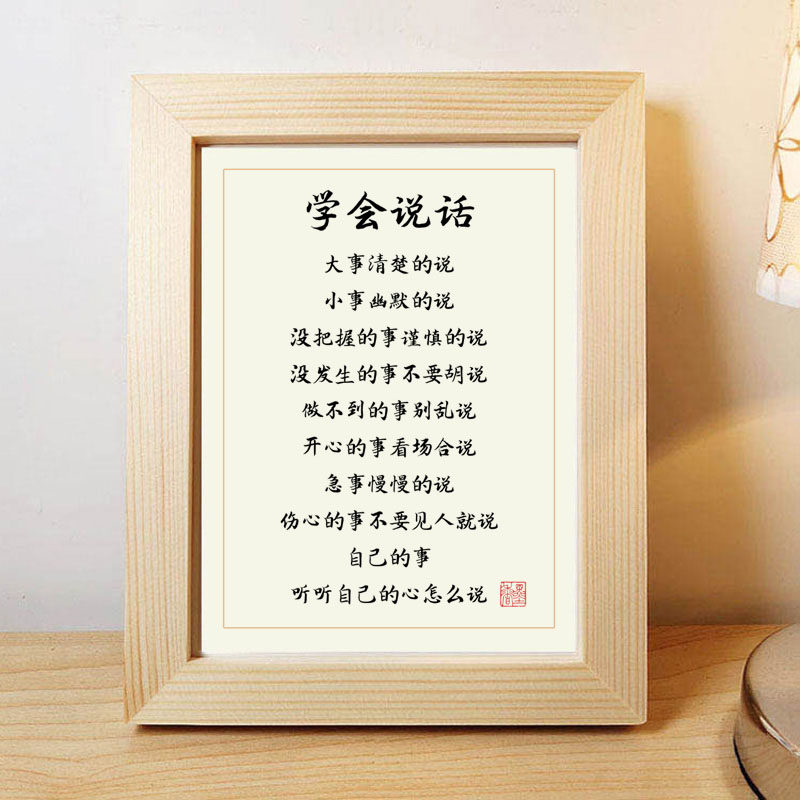 学会说话
大事清楚的说
小事幽默的说
没把握的事谨慎的说
没发生的事不要胡说
做不到的事别乱说
开心的事看场合说
急事慢慢的说
伤心的事不要见人就说
自己的事
听听自己的心怎么说